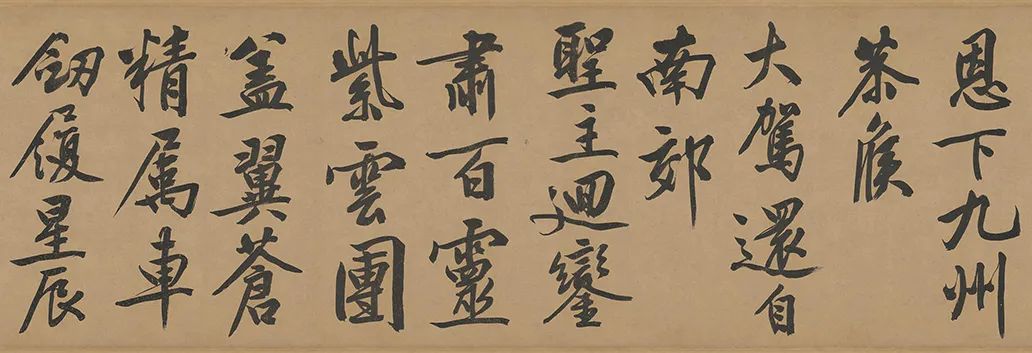 恩下九州
恭候
大駕還自
南郊
聖主迴鑾
肅百靈
紫雲團
蓋翼蒼
精属車
劔履星辰